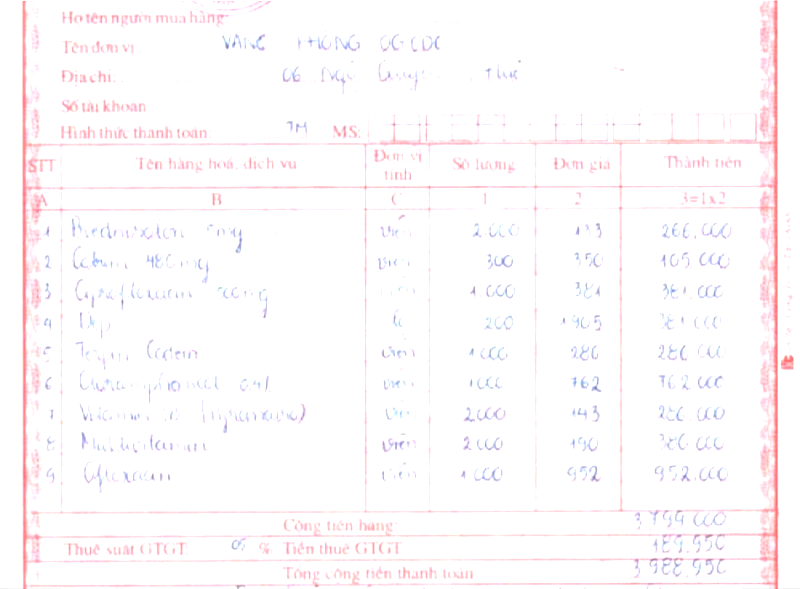 Họ tên người mua hàng:
Tên đơn vị
Địa chỉ: 06 Ngô
Số tài khoản
Hình thức thanh toán: TM MS:
STT Tên hàng hoá, dịch vụ Đơn vị tính Số lượng Đơn giá Thành tiền
A B C 1 2 3=1x2
1 Prednisolon 5mg viên 2.000 133 266.000
2 480mg viên 300 350 105.000
3 500mg 1.000 381 381.000
4 Dep lọ 200 1905 381.000
5 Terpin Codein viên 1000 286 286.000
6 viên 1000 762 762.000
7 Vitamin viên 2000 143 286.000
8 Multivitamin viên 2000 190 380.000
9 viên 1.000 952 952.000
Cộng tiền hàng: 3 799 000
Thuế suất GTGT 05 % Tiền thuế GTGT 189.950
Tổng cộng tiền thanh toán 3 988.950